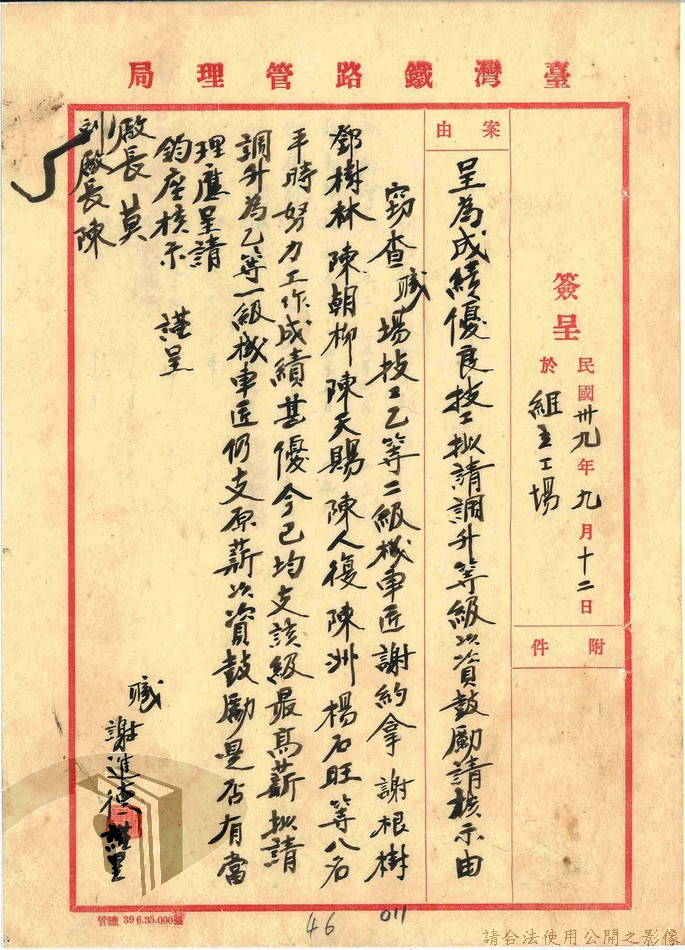 臺灣鐵路管理局
簽呈 民國卅九年九月十二日
於組立工場
附件
案由
呈為成績優良技工擬請調升等級以資鼓勵請核示由
竊查職場技工乙等二級機車匠謝約拿謝根樹
鄧樹林陳朝柳陳天賜陳人復陳洲楊石旺等八名
平時努力工作成績甚優今已均支該級最高薪擬請
調升為乙等一級機車匠仍支原薪以資鼓勵是否有當
理應呈請
鈞座核示
謹呈
廠長莫
副廠長陳
職謝進德謹呈
管總 39 6.35.000張
46
011
請合法使用公開之影像